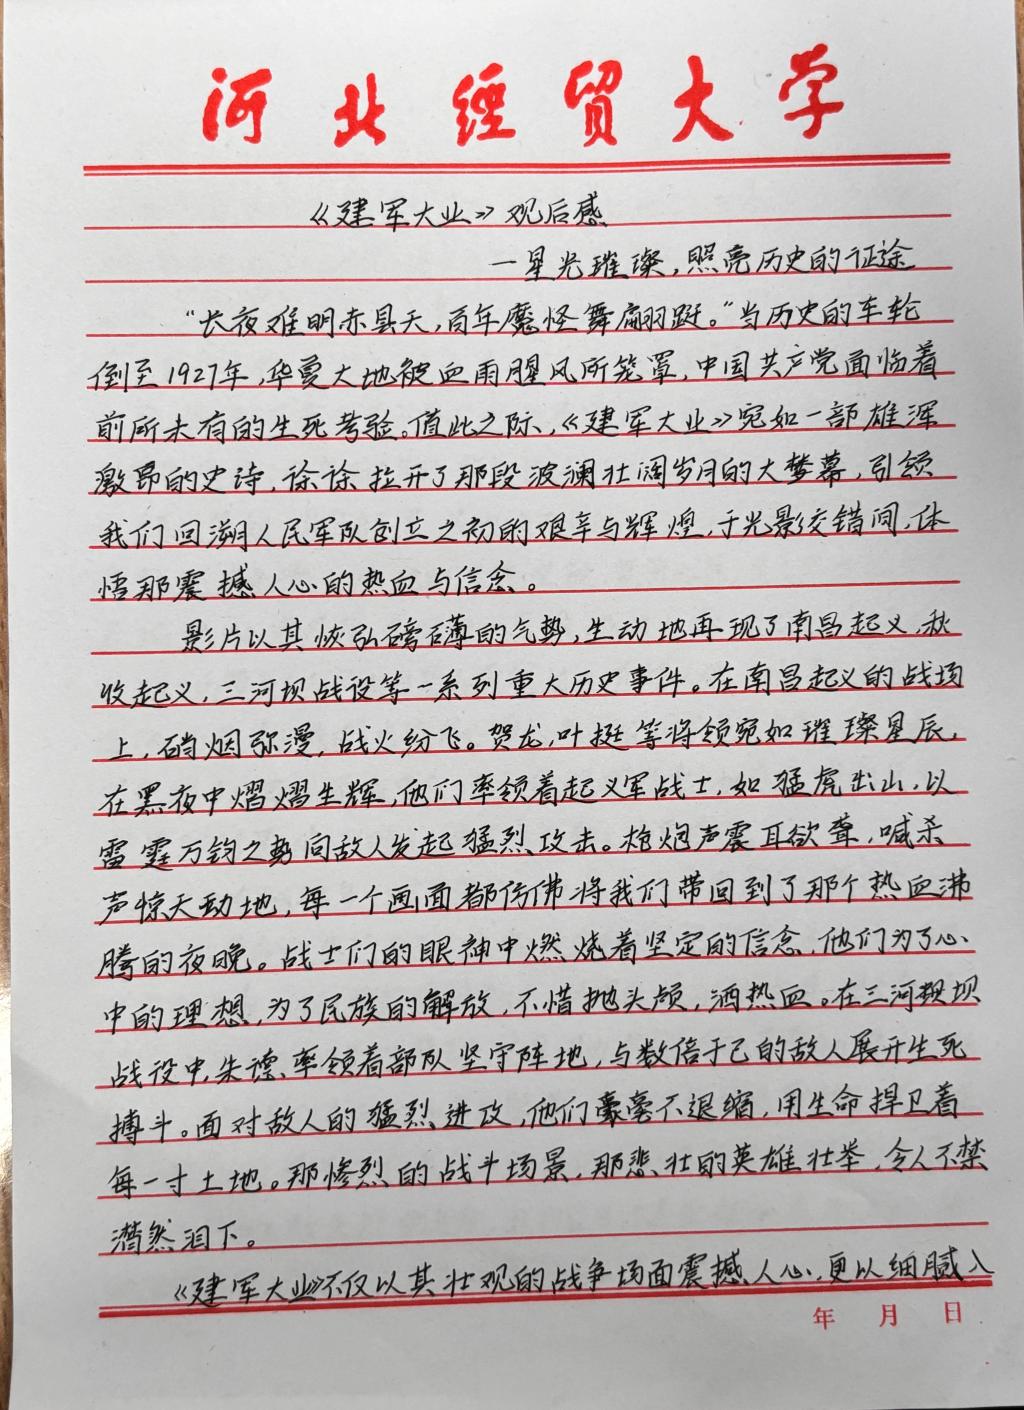 河北经贸大学
《建军大业》观后感
一星光璀璨,照亮历史的征途
“长夜难明赤县天,百年魔怪舞翩跹。”当历史的车轮
倒至1927年,华夏大地被血雨腥风所笼罩,中国共产党面临着
前所未有的生死考验。值此之际,《建军大业》宛如一部雄浑
激昂的史诗,徐徐拉开了那段波澜壮阔岁月的大幕,引领
我们回溯人民军队创立之初的艰辛与辉煌,于光影交错间,体
悟那震撼人心的热血与信念。
影片以其恢弘磅礴的气势,生动地再现了南昌起义,秋
收起义,三河坝战役等一系列重大历史事件。在南昌起义的战场
上,硝烟弥漫,战火纷飞。贺龙,叶挺等将领宛如璀璨星辰,
在黑夜中熠熠生辉,他们率领着起义军战士,如猛虎出山,以
雷霆万钧之势向敌人发起猛烈攻击。枪炮声震耳欲聋,喊杀
声惊天动地,每一个画面都仿佛将我们带回到了那个热血沸
腾的夜晚。战士们的眼神中燃烧着坚定的信念,他们为了心
中的理想,为了民族的解放,不惜抛头颅,洒热血。在三河坝
战役中,朱德率领着部队坚守阵地,与数倍于己的敌人展开生死
搏斗。面对敌人的猛烈进攻,他们毫不退缩,用生命捍卫着
每一寸土地。那惨烈的战斗场景,那悲壮的英雄壮举,令人不禁
潸然泪下。
《建军大业》不仅以其壮观的战争场面震撼人心,更以细腻入
年 月 日